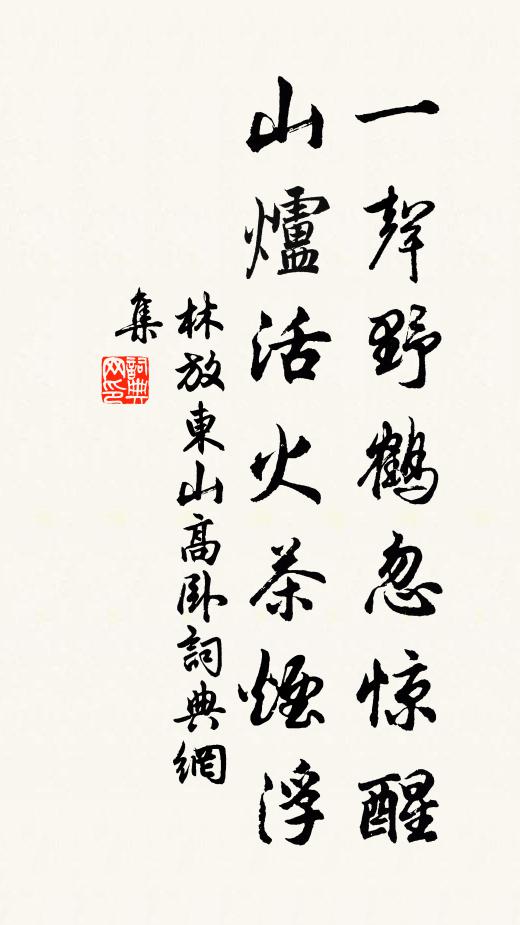 一聲野鶴忽惊醒
山爐活火茶煙浮
林放東山高臥詞典網
集
詞典
网印